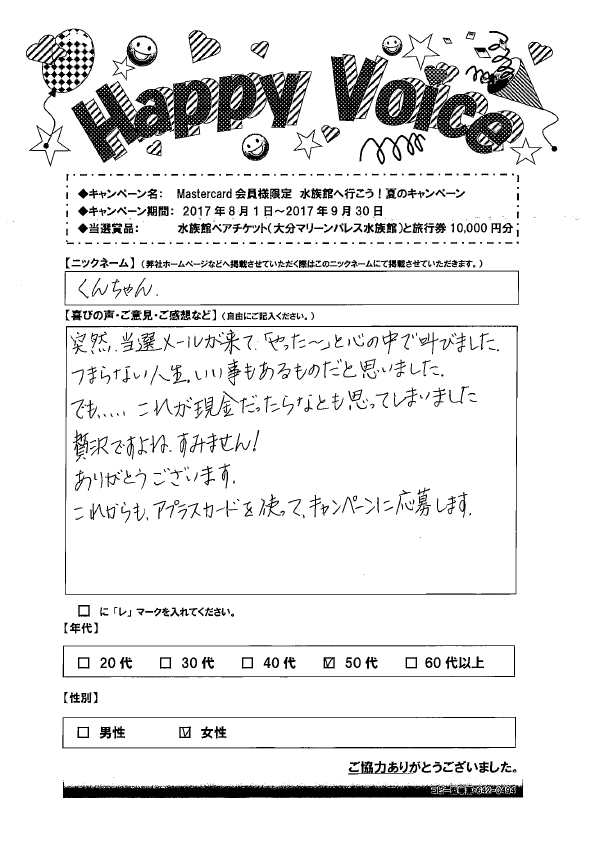 Happy Voice
◆キャンペーン名： Mastercard 会員様限定 水族館へ行こう！夏のキャンペーン
◆キャンペーン期間： 2017年8月1日～2017年9月30日
◆当選賞品： 水族館ペアチケット（大分マリーンパレス水族館）と旅行券 10,000 円分
【ニックネーム】（弊社ホームページなどへ掲載させていただく際はこのニックネームにて掲載させていただきます。）
くんちゃん.
【喜びの声・ご意見・ご感想など】（自由にご記入ください。）
突然、当選メールが来て、「やった～」と心の中で叫びました.
つまらない人生。いい事もあるものだと思いました.
でも、.... これが現金だったらなとも思ってしまいました
贅沢ですよね。すみません!
ありがとうございます.
これからも、アプラスカードを使って、キャンペーンに応募します.
□ に「レ」マークを入れてください。
【年代】
□ 20代 □ 30代 □ 40代 ☑ 50代 □ 60代以上
【性別】
□ 男性 ☑ 女性
ご協力ありがとうございました。